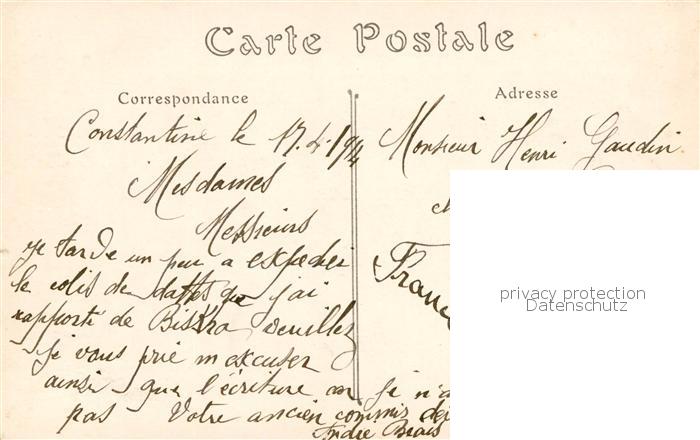 Carte Postale
Correspondance
Adresse
Constantine le 17.4.1914
Monsieur Henri Gaudin
Mesdames
Messieurs
je tarde un peu a expedier
le colis de dattes que j'ai
rapporté de Biskra veuillez
je vous prie m excuser
ainsi que l'écriture car je n'a
pas Votre ancien commis
André
France
privacy protection
Datenschutz